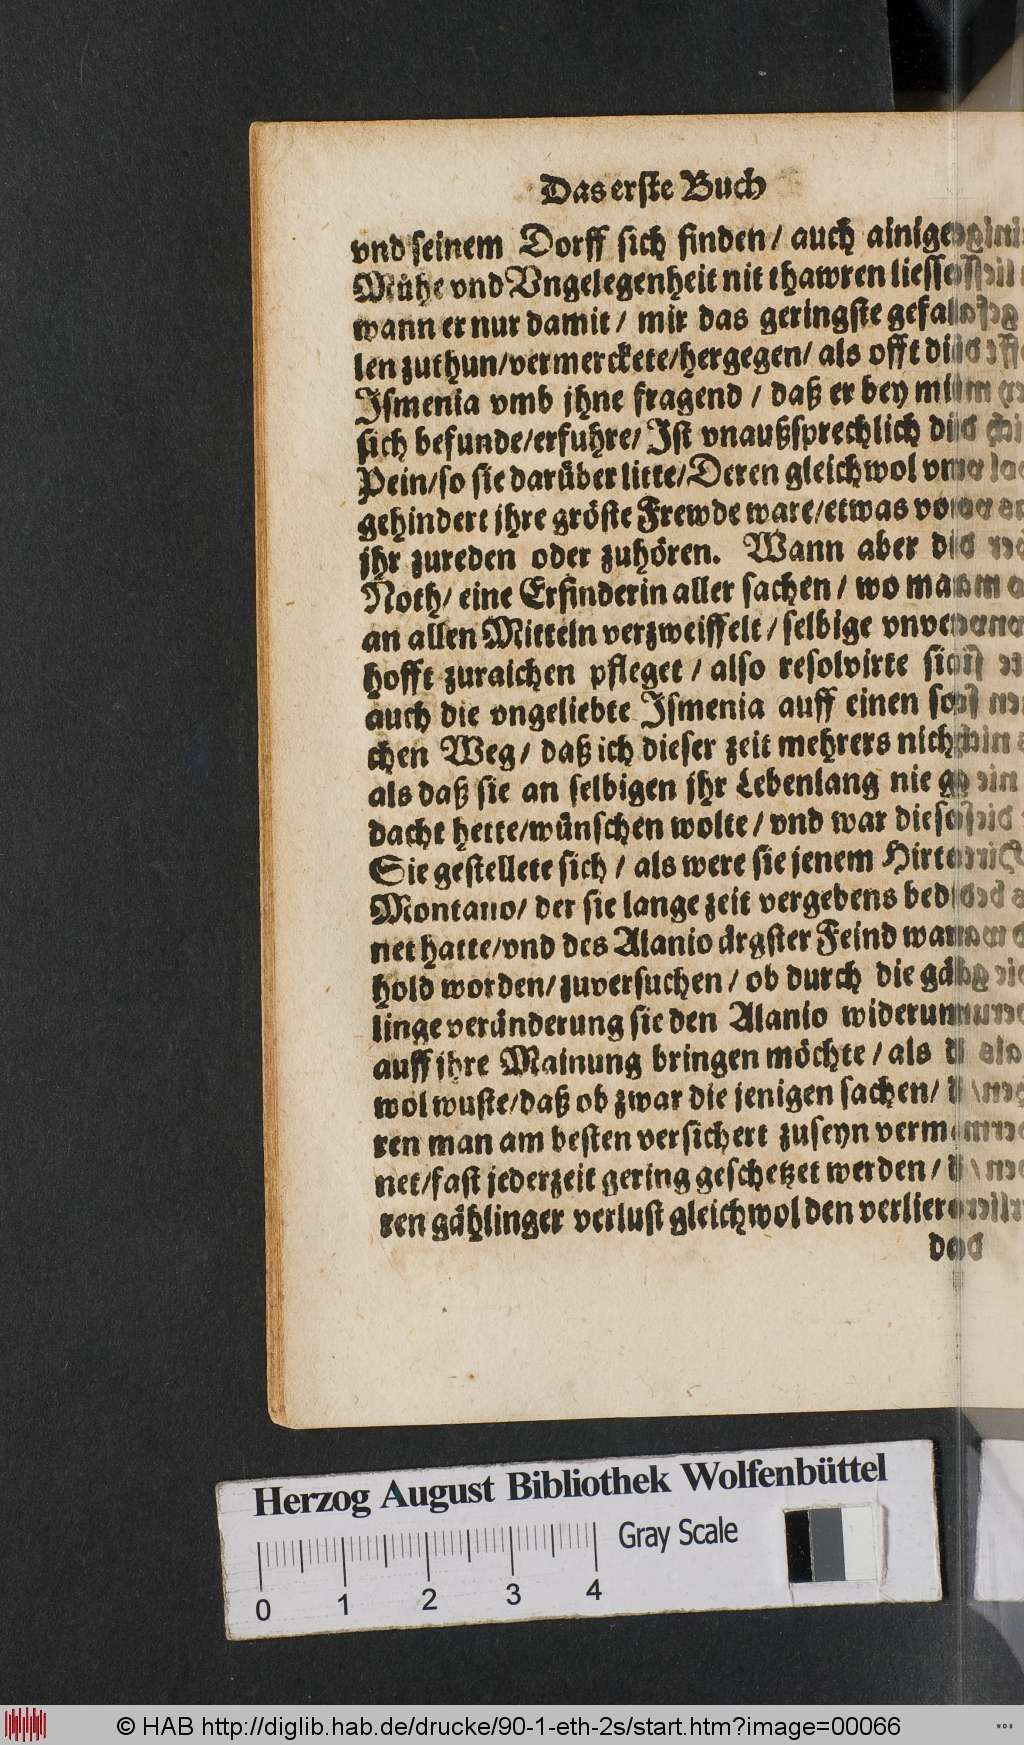 Das erste Buch
vnd seinem Dorff sich finden / auch ainige
Mühe vnd Vngelegenheit nit thawren liesse
wann er nur damit / mir das geringste gefal
len zuthun/vermerckete/hergegen/ als offt di
Ismenia vmb jhne fragend / daß er bey mi
sich befunde/erfuhre/ Ist vnaußsprechlich di
Pein/so sie darüber litte/Deren gleichwol vn
gehindert jhre gröste Frewde ware/etwas vo
jhr zureden oder zuhören. Wann aber di
Noth/ eine Erfinderin aller sachen / wo man
an allen Mitteln verzweiffelt / selbige vnver
hofft zuraichen pfleget / also resolvirte sich
auch die vngeliebte Ismenia auff einen sol
chen Weg / daß ich dieser zeit mehrers nich
als daß sie an selbigen jhr Lebenlang nie ge
dacht hette/wünschen wolte / vnd war dieser
Sie gestellete sich / als were sie jenem Hirten
Montano/ der sie lange zeit vergebens bedie
net hatte/vnd des Alanio ärgster Feind war
hold worden/ zuversuchen / ob durch die gäh
linge veränderung sie den Alanio widerum
auff jhre Mainung bringen möchte / als di
wol wuste/daß ob zwar die jenigen sachen/ d
ren man am besten versichert zuseyn verm
net/fast jederzeit gering geschetzet werden / d
ren gählinger verlust gleichwol den verlier
Herzog August Bibliothek Wolfenbüttel
Gray Scale
0 1 2 3 4
© HAB http://diglib.hab.de/drucke/90-1-eth-2s/start.htm?image=00066